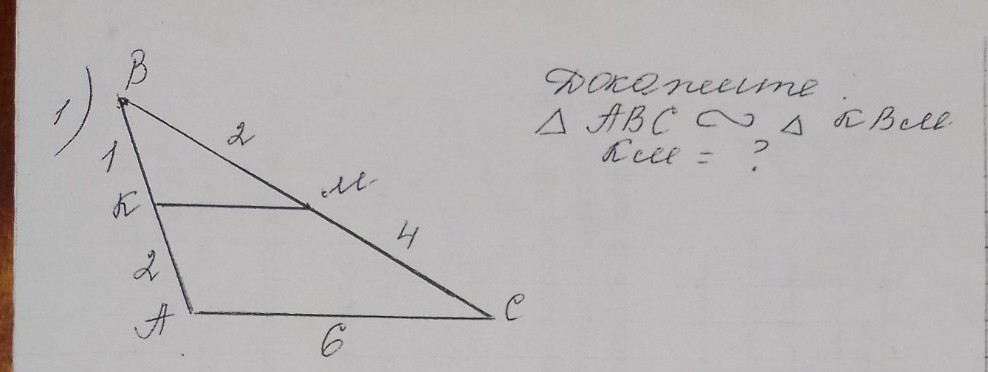 1)
B
2
1
M
K
4
2
A
C
6
Докажите
△ ABC ∽ △ KBM
KM = ?